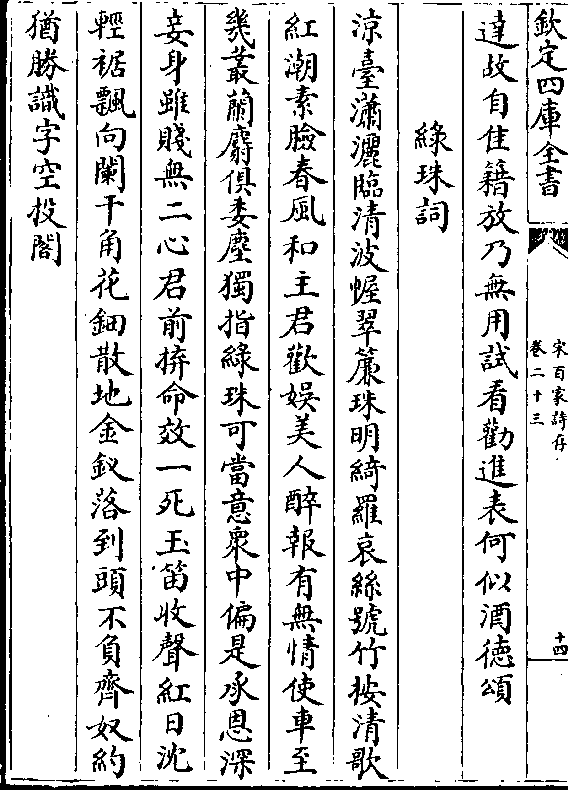 欽定四庫全書
宋百家詩存
卷二十三
十四
達故自佳籍放乃無用試看勸進表何似酒德頌
綠珠詞
涼臺瀟灑臨清波幄翠簾珠明綺羅哀絲號竹按清歌
紅潮素臉春風和主君歡娱美人醉報有無情使車至
幾叢蘭麝俱委塵獨指綠珠可當意衆中偏是承恩深
妾身雖賤無二心君前拚命效一死玉笛收聲紅日沈
輕裾飄向闌干角花鈿散地金釵落到頭不負齊奴約
猶勝識字空投閣